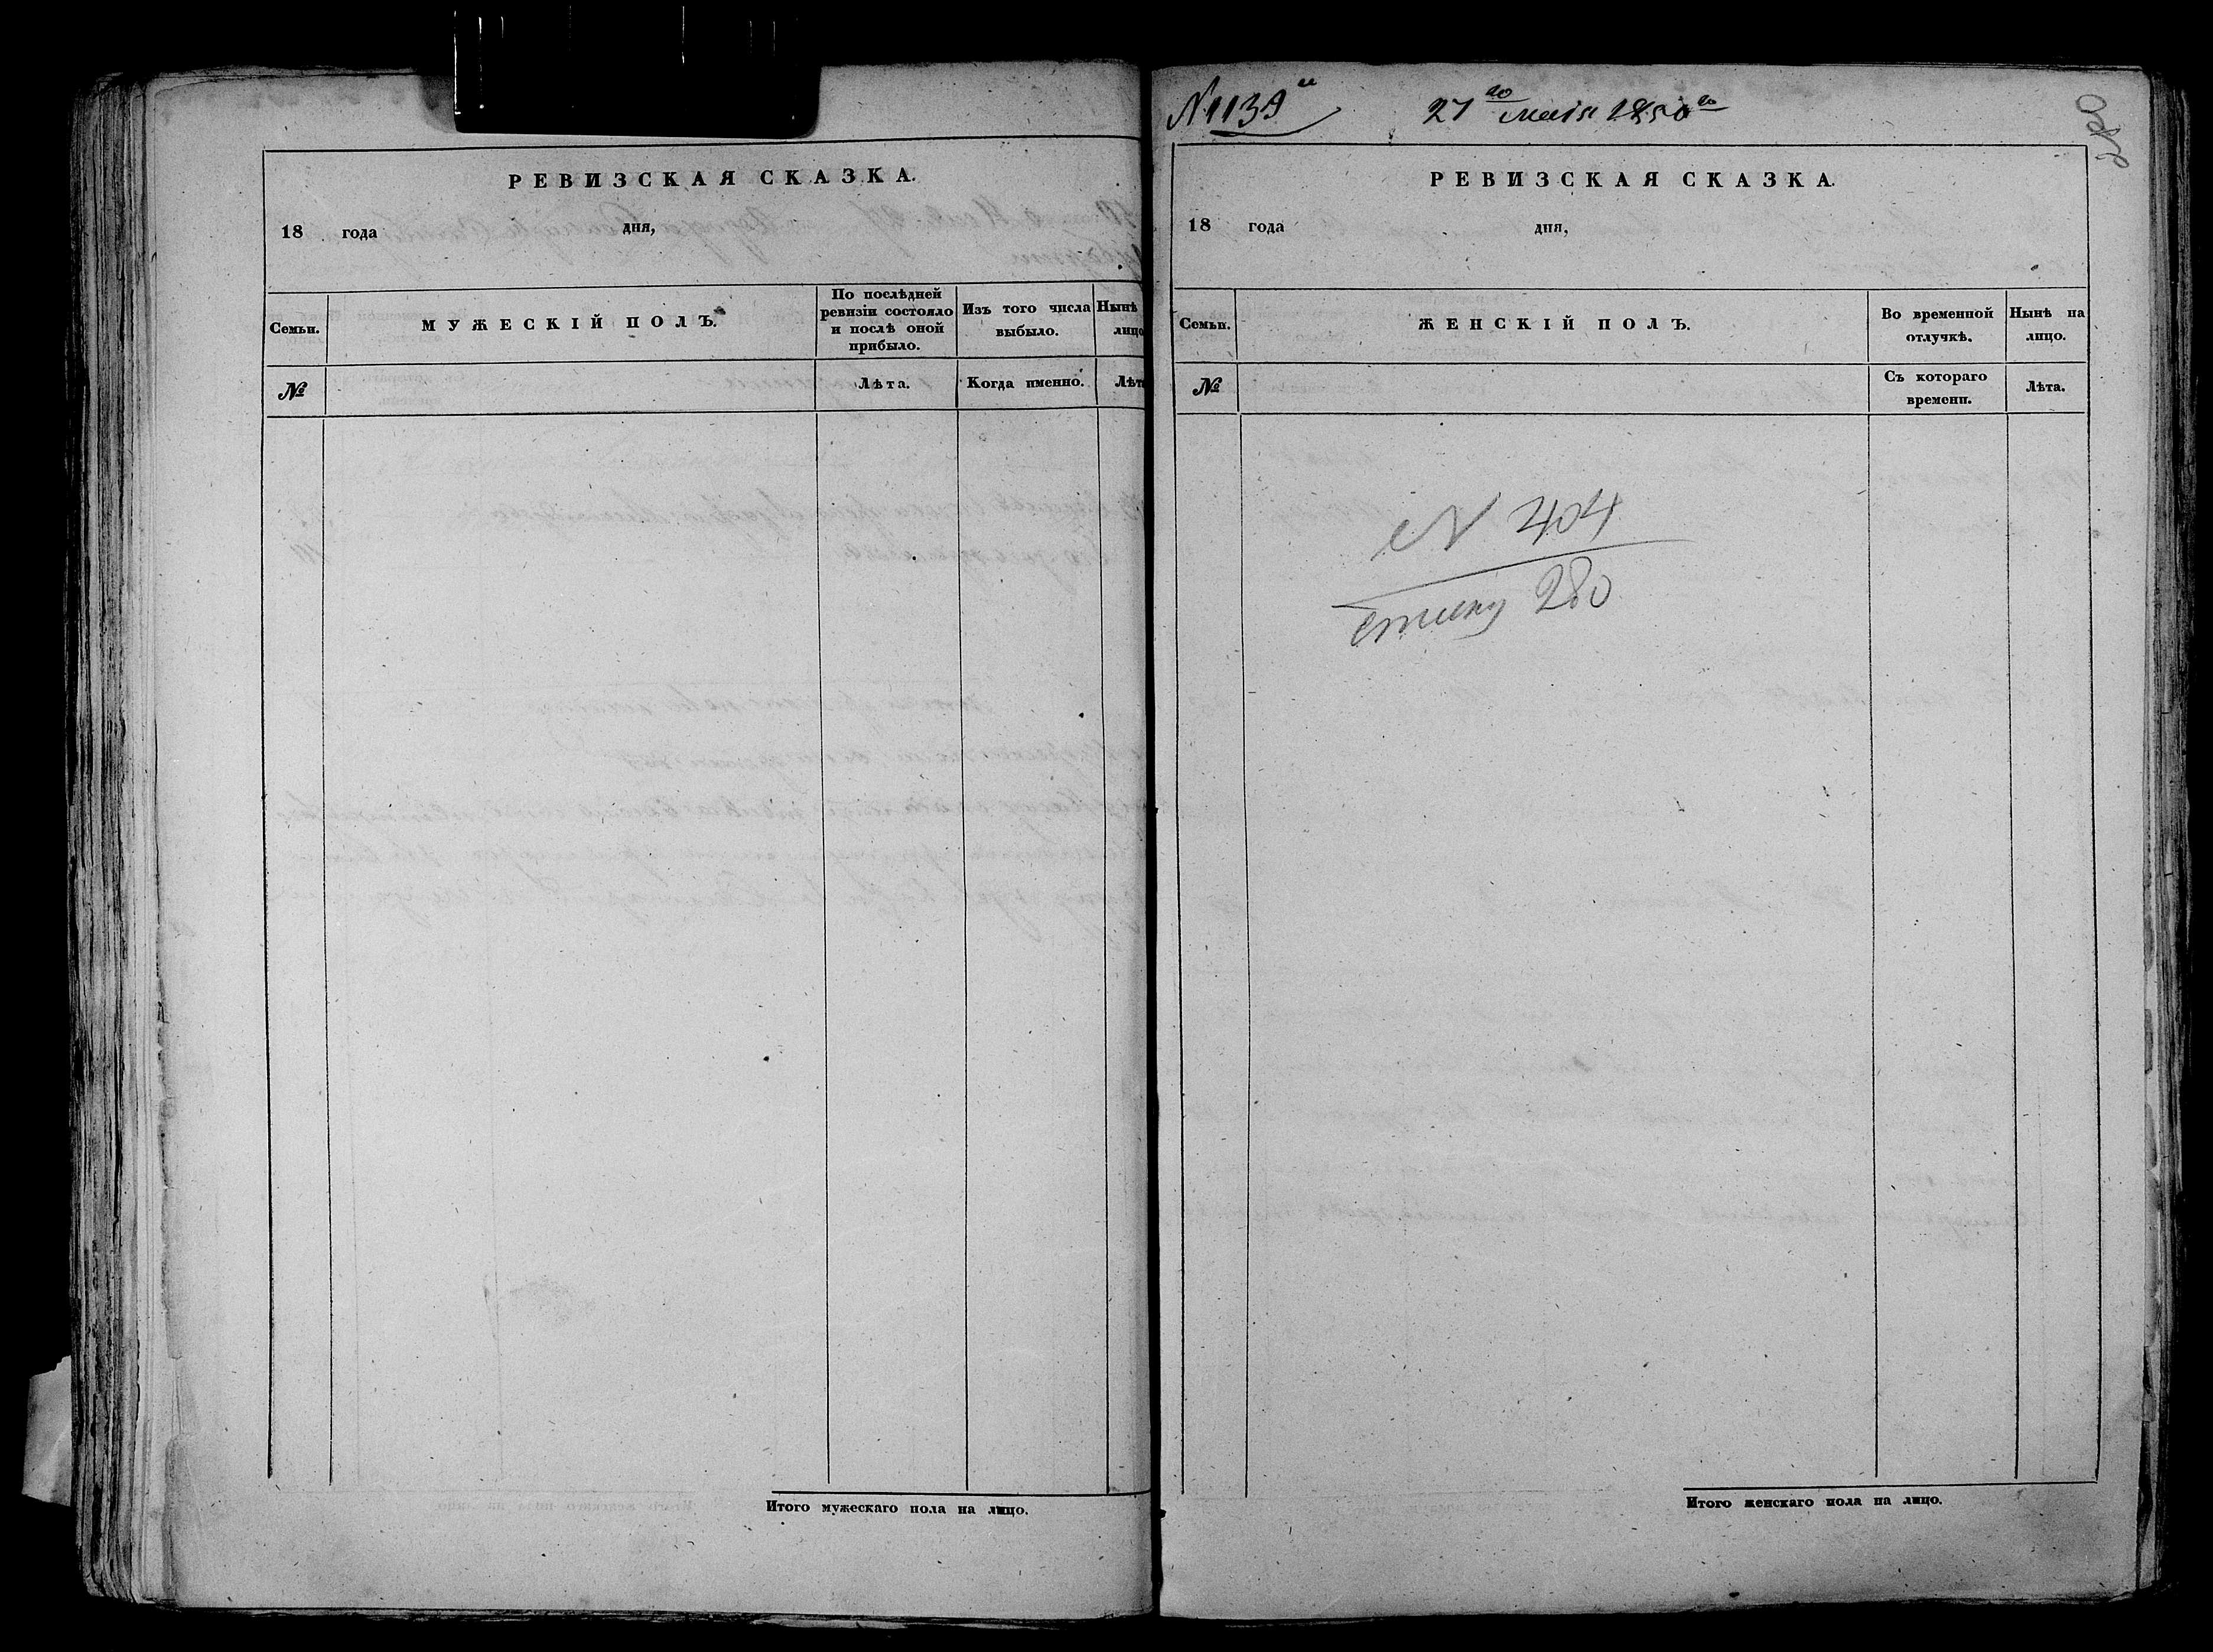 РЕВИЗСКАЯ СКАЗКА.
18 года дня,
Семьи.
МУЖЕСКІЙ ПОЛЪ.
По послѣдней
ревизіи состояло
и послѣ оной
прибыло.
Изъ того числа
выбыло.
Нынѣ
лицо
№
Лѣта.
Когда именно.
Лѣт
Итого мужескаго пола на лицо.
N 1139й
27го маія 1850го
280
РЕВИЗСКАЯ СКАЗКА.
18 года дня,
Семьи.
ЖЕНСКІЙ ПОЛЪ.
Во временной
отлучкѣ.
Нынѣ на
лицо.
№
Съ котораго
времени.
Лѣта.
N 404
280
Итого женскаго пола на лицо.